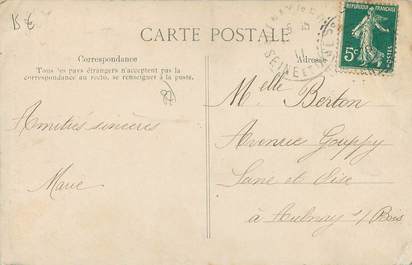 15 €
CARTE POSTALE
Correspondance
Tous les pays étrangers n'acceptent pas la
correspondance au recto, se renseigner à la poste.
Adresse
RÉPUBLIQUE FRANÇAISE
5c
SEINE ET OISE
Amitiés sincères
Marie
Melle Berton
Avenue Gouppy
Sane et Oise
à Aulnay s/ Bois